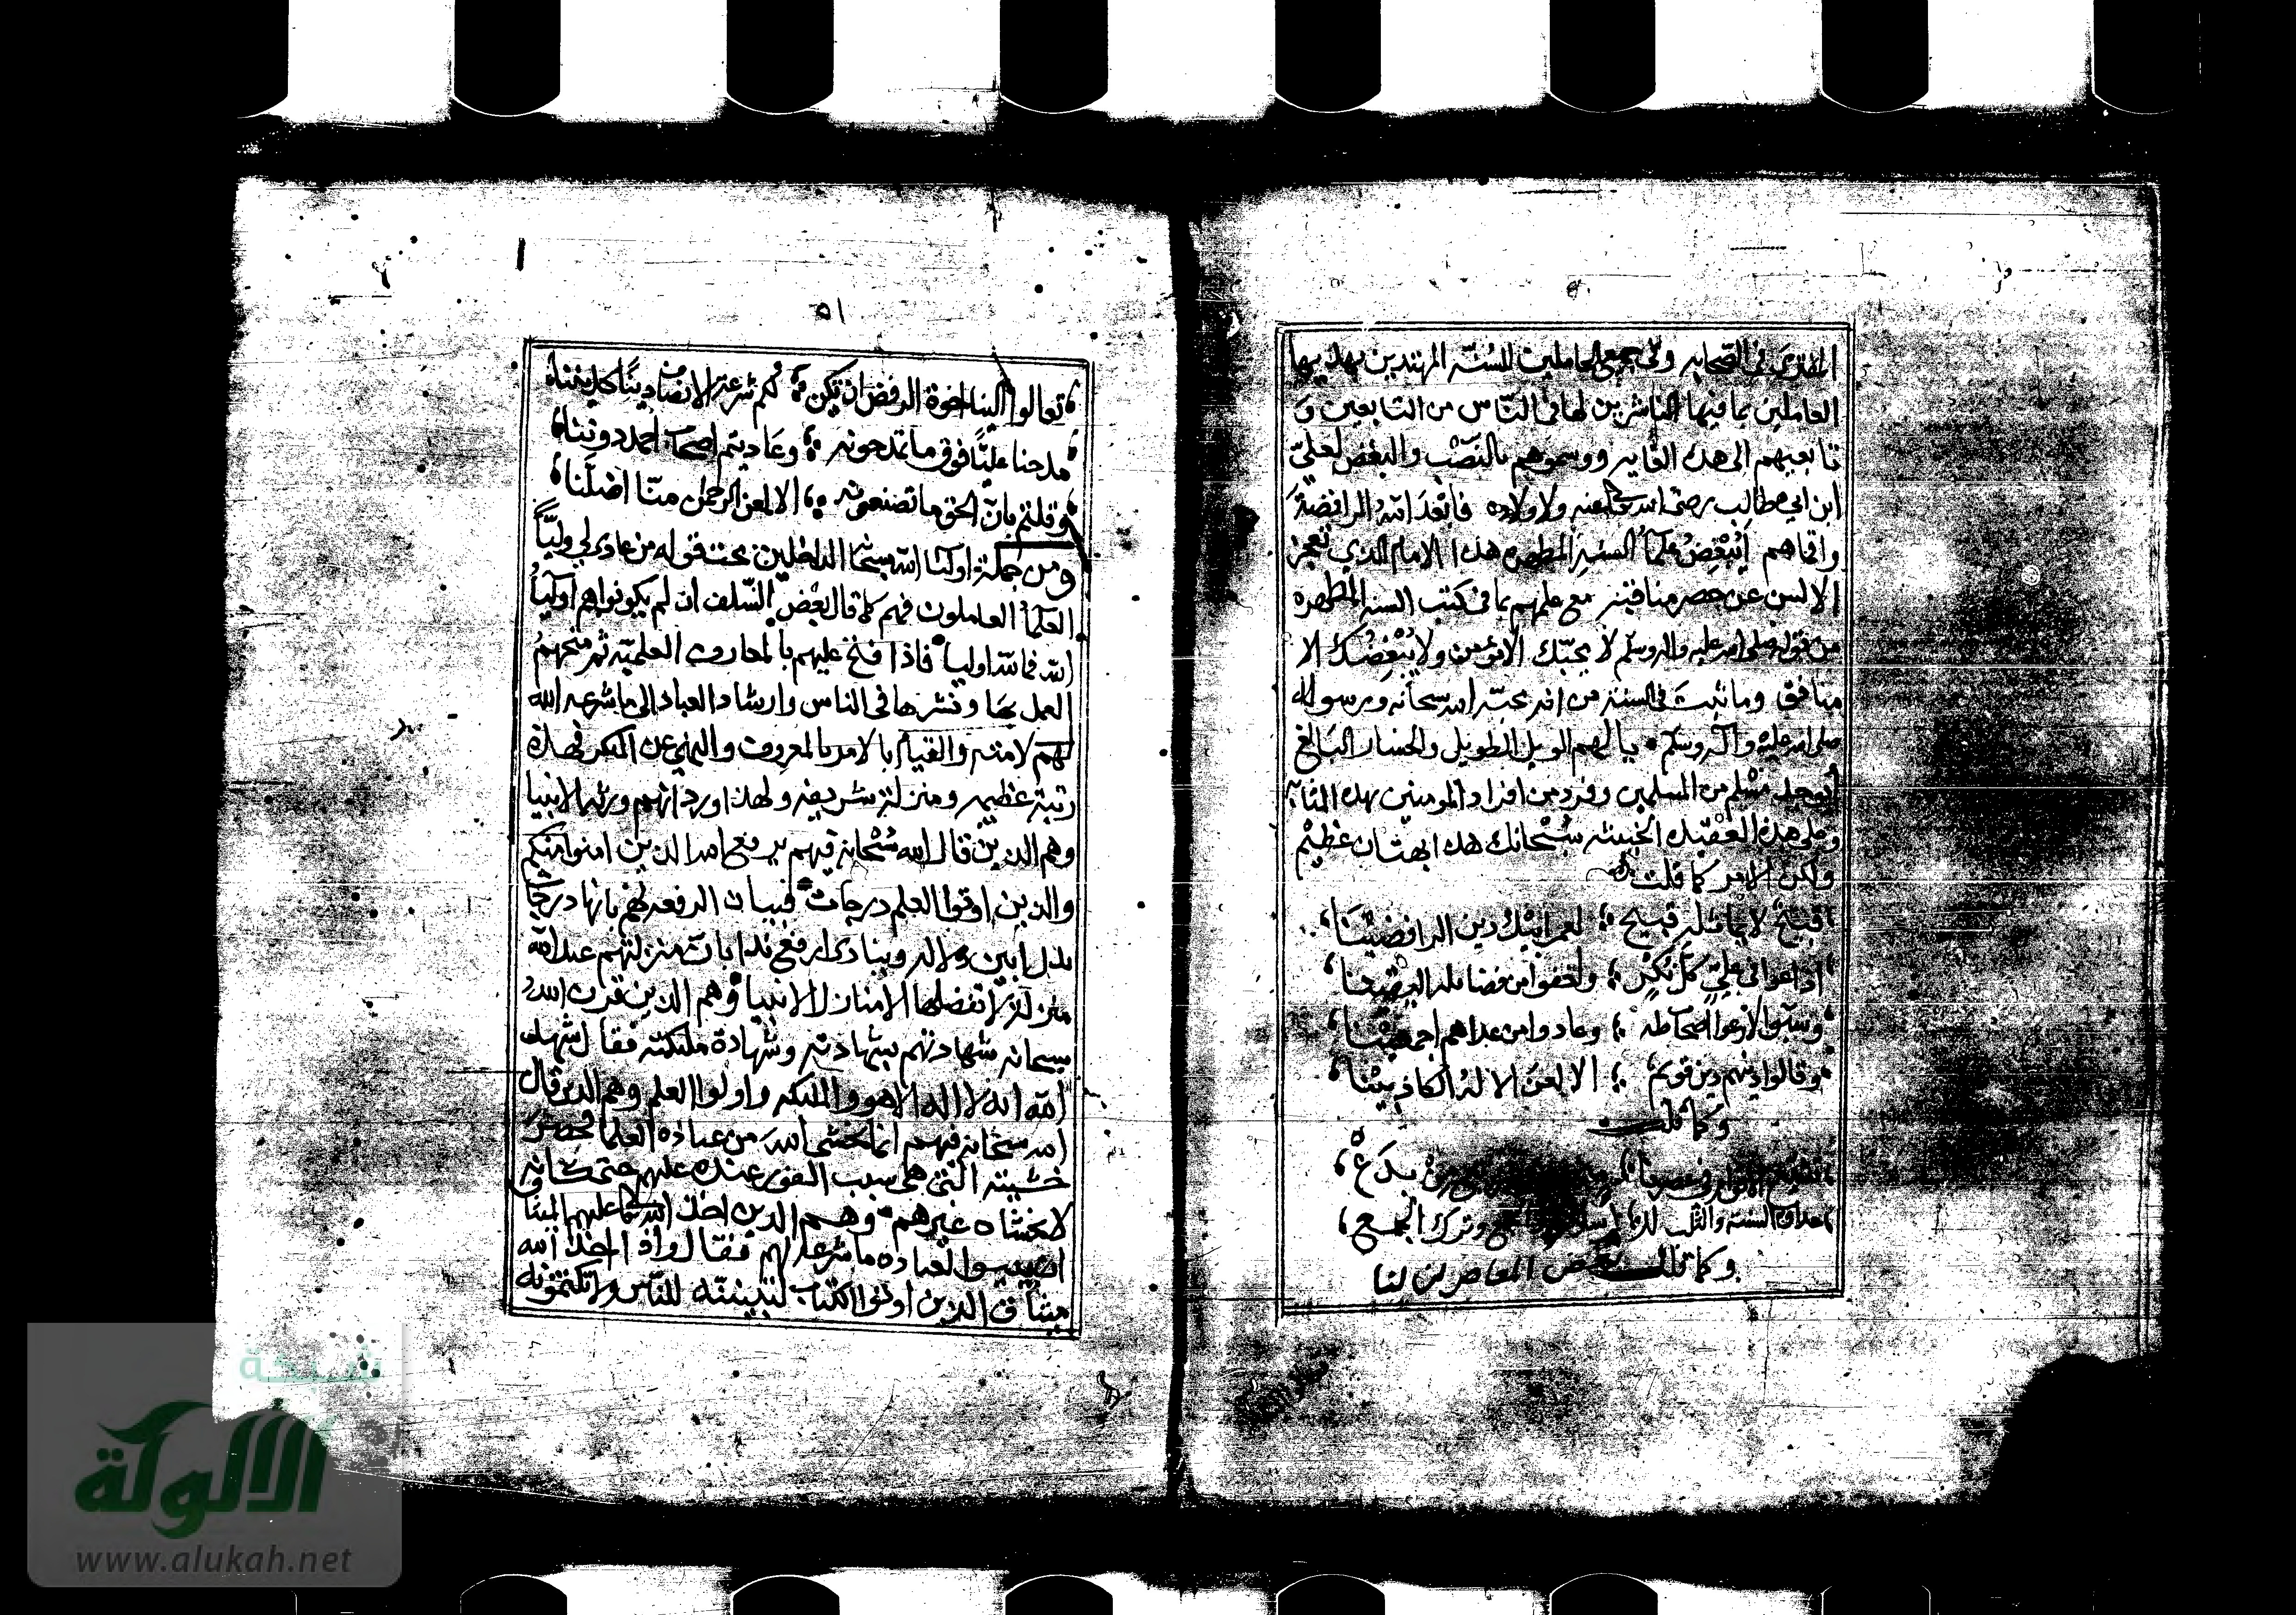 المفترى في الصحابه وفي جميع العاملين للسنة المهتدين بهديها
العاملين بما فيها الناشرين لها في الناس من التابعين و
تابعيهم الى هذه الغايه ووسموهم بالنصب والبغض لعلي
ابن ابي طالب رضي الله عنه ولاولاده فابعد الله الرافضة
واقماهم ايبغض علما السنة المطهره هذا الامام الذي تعجز
الالسن عن حصر مناقبه مع علمهم بما في كتب السنه المطهره
من قوله صلى الله عليه واله وسلم لا يحبك الا مؤمن ولا يبغضك الا
منافق وما ثبت في السنة من انه يحبه الله سبحانه ورسوله
صلى الله عليه وآله وسلم يا لهم الويل الطويل والخسار البالغ
أيوجد مسلم من المسلمين وفرد من افراد المومنين بهذه المثابه
وعلى هذه العقيده الخبيثه سبحانك هذا بهتان عظيم
ولكن الامر كما قلت
قبيح لا يماثله قبيح لعمر ابيك دين الرافضينا
اذاعوا في علي كل نكر واخفوا من فضائله اليقينا
وسبوا لا رعوا اصحاب طه وعادوا من عداهم اجمعينا
وقالوا دينهم دين قويم الا لعن الاله الكاذبينا
وكما قلت
بدع
عداوة السنة والثلب وترك الجمع
وكما قلت بعض المعاصرين لنا
٥١
تعالوا الينا اخوة الرفض ان تكن لكم شرعة الانصاف دينًا كديننا
مدحنا عليًا فوق ما تمدحونه وعاديتم اصحاب احمد دوننا
وقلتم بان الحق ما تصنعونه الا لعن الرحمن منا اضلنا
ومن جملة اوليا الله سبحانه الداخلين تحت قوله من عادى لي وليًّا
العلما العاملون فهم كما قال بعض السلف ان لم يكونوا هم اوليا
الله فما لله اوليا فاذا فتح عليهم بالمعارف العلمية ثم منحهم
العمل بها ونشرها في الناس وارشاد العباد الى ما شرعه الله
لهم لامته والقيام بالامر بالمعروف والنهي عن المنكر فهذه
رتبة عظيمه ومنزلة شريفه ولهذا ورد انهم ورثة الانبيا
وهم الذين قال الله سبحانه فيهم يرفع الله الذين امنوا منكم
والذين اوتوا العلم درجات فبيان الرفعه لهم بانها درجات
يدل ابين دلاله وينادى ارفع ندا بان منزلتهم عند الله
منزلة لا تفضلها الا منازل الانبيا وهم الذين قرن الله
سبحانه شهادتهم بشهادته وشهادة ملئكته فقال شهد
الله انه لا اله الا هو والملئكه واولوا العلم وهم الذين قال
الله سبحانه فيهم انما يخشى الله من عباده العلما فحصر
خشيته التي هي سبب الفوز عنده عليهم حتى كانه
لا يخشاه غيرهم وهم الذين اخذ الله سبحانه عليهم الميثاق
ان يبينوا لعباده ما شرعه لهم فقال واذ اخذ الله
ميثاق الذين اوتوا الكتاب لتبيننه للناس ولا تكتمونه
شبكة
الألوكة
www.alukah.net